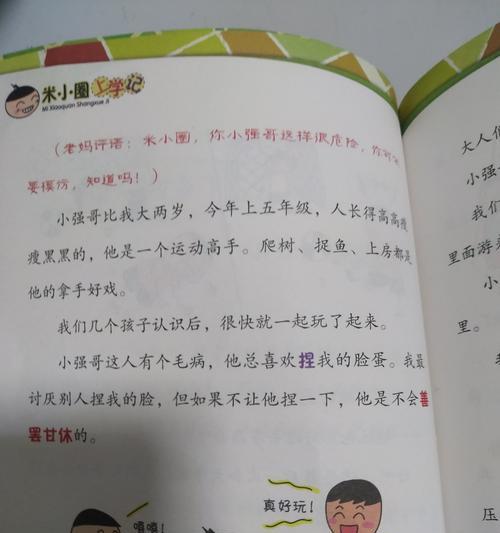 米小圈上学记
Mi Xiaoquan Shangxue Ji
(老妈评语：米小圈，你小强哥这样很危险，你可不
要模仿，知道吗！)
小强哥比我大两岁，今年上五年级，人长得高高瘦
瘦黑黑的，他是一个运动高手。爬树、捉鱼、上房都是
他的拿手好戏。
我们几个孩子认识后，很快就一起玩了起来。
小强哥这人有个毛病，他总喜欢捏我的脸蛋。我最
讨厌别人捏我的脸，但如果不让他捏一下，他是不会善
罢甘休的。
嘻嘻！
真好玩！
大人们
小强哥
我们
里面游来
小
里。
压